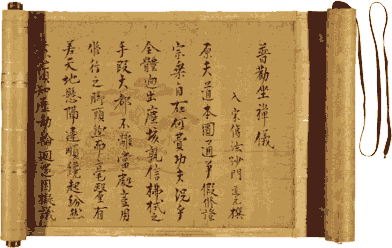 普勸坐禪儀
入宋傳法沙門道元撰
原夫道本圓通爭假修證
宗乘自在何費功夫況乎
全體迥出塵埃孰信拂拭之
手段大都不離當處豈用
修行之脚頭然而毫釐有
差天地懸隔違順纔起紛然
須知塵劫輪廻還因擬議